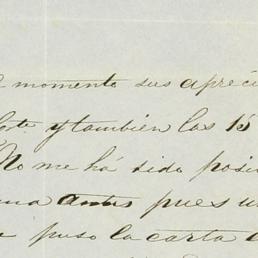 momento sus apreci
y tambien las 15
No me há sido posi
antes pues u
puso la carta